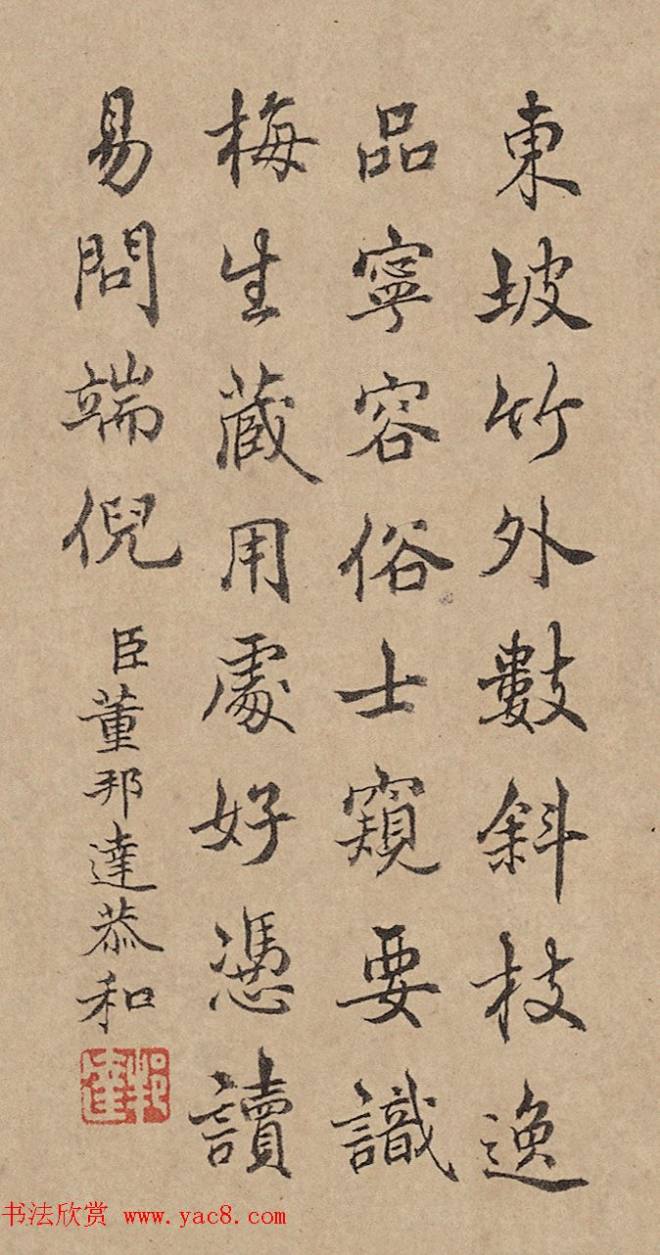 東坡竹外數斜枝逸
品寧容俗士窺要識
梅生藏用處好憑讀
易問端倪
臣董邦達恭和
邦達
书法欣赏 www.yac8.com